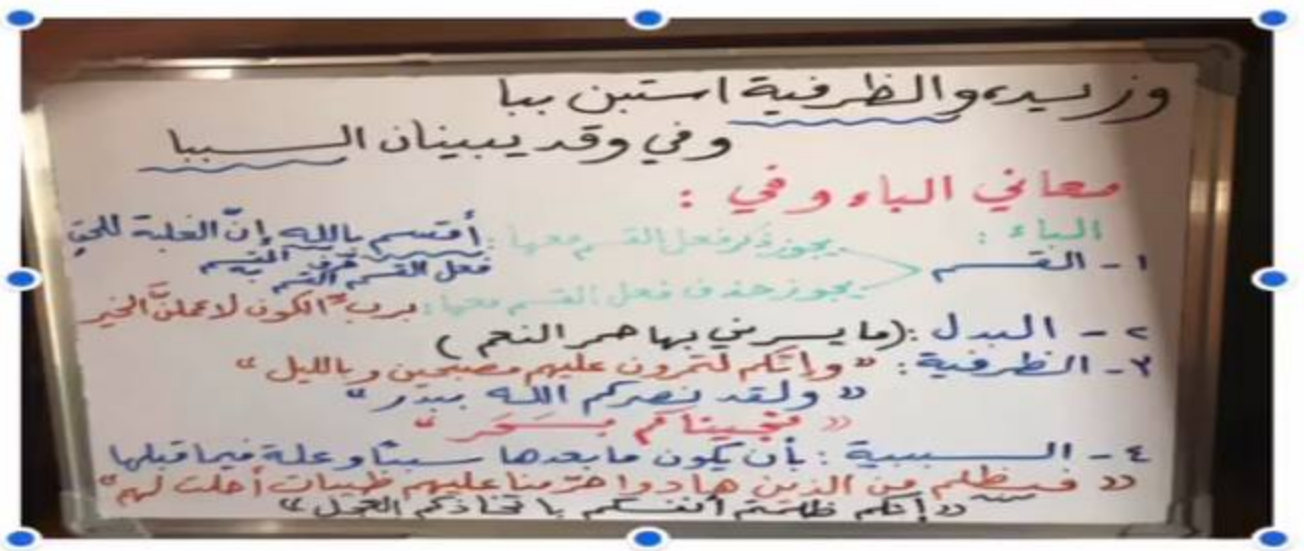 وزيد، والظرفية استبن ببا
وفي وقد يبينان السببا
معاني الباء وفي :
الباء :
١ - القسم
يجوز ذكر فعل القسم معها : أقسم بالله إنّ الغلبة للحق
فعل القسم حرف القسم المقسم به
يجوز حذف فعل القسم معها : بربّ الكون لأعملنّ الخير
٢ - البدل : (ما يسرني بها حمر النعم)
٣ - الظرفية : "وإنّكم لتمرون عليهم مصبحين وبالليل"
"ولقد نصركم الله ببدر"
"نجيناكم بسَحَر"
٤ - السببية : بأن يكون ما بعدها سببًا وعلة فيما قبلها
"فبظلم من الذين هادوا حرّمنا عليهم طيبات أحلت لهم"
"إنكم ظلمتم أنفسكم باتخاذكم العجل"